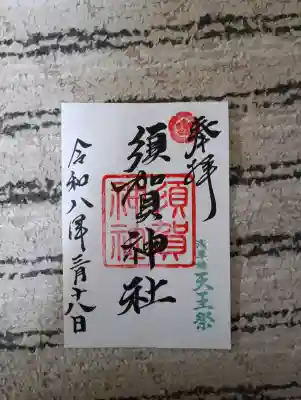 奉拝
浅草橋
天王祭
須賀神社
須賀
神社
令和八年三月十八日